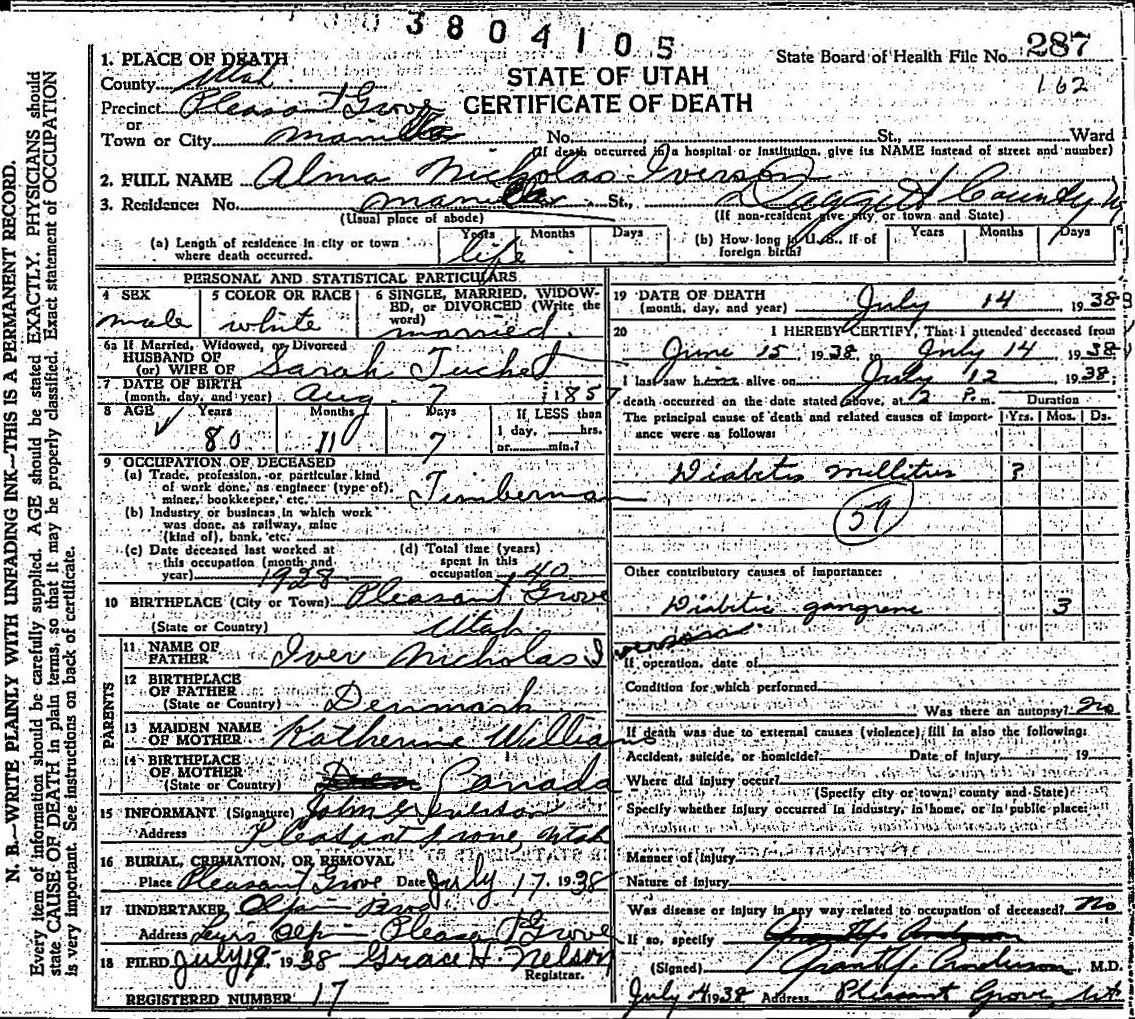 3804105
State Board of Health File No. 287
162
STATE OF UTAH
CERTIFICATE OF DEATH
1. PLACE OF DEATH
County Utah
Precinct Pleasant Grove
or
Town or City Manilla No. St., Ward
(If death occurred in a hospital or institution, give its NAME instead of street and number)
2. FULL NAME Alma Nicholas Iverson
3. Residence: No. Manilla St., Daggett County
(Usual place of abode) (If non-resident give city or town and State)
(a) Length of residence in city or town where death occurred. Years Months Days
life
(b) How long in U.S., if of foreign birth? Years Months Days
PERSONAL AND STATISTICAL PARTICULARS
4 SEX
male
5 COLOR OR RACE
white
6 SINGLE, MARRIED, WIDOWED, or DIVORCED (Write the word)
married
6a If Married, Widowed, or Divorced
HUSBAND OF
(or) WIFE OF Sarah
7 DATE OF BIRTH
(month, day, and year) Aug. 7 1857
8 AGE Years Months Days If LESS than
1 day, hrs.
or min.?
80 11 7
9 OCCUPATION OF DECEASED
(a) Trade, profession, or particular kind
of work done, as engineer (type of),
miner, bookkeeper, etc. Timberman
(b) Industry or business in which work
was done, as railway, mine
(kind of), bank, etc.
(c) Date deceased last worked at
this occupation (month and
year) 1928
(d) Total time (years)
spent in this
occupation 40
10 BIRTHPLACE (City or Town) Pleasant Grove
(State or Country) Utah
PARENTS
11 NAME OF
FATHER Iver Nicholas Iverson
12 BIRTHPLACE
OF FATHER
(State or Country) Denmark
13 MAIDEN NAME
OF MOTHER Katherine Williams
14 BIRTHPLACE
OF MOTHER
(State or Country) Canada
15 INFORMANT (Signature) John Iverson
Address Pleasant Grove, Utah
16 BURIAL, CREMATION, OR REMOVAL
Place Pleasant Grove Date July 17 1938
17 UNDERTAKER
Address Pleasant Grove
18 FILED July 19 1938 Grace H. Nelson
Registrar.
REGISTERED NUMBER 17
19 DATE OF DEATH
(month, day, and year) July 14 1938
20 I HEREBY CERTIFY, That I attended deceased from
June 15 1938, to July 14 1938
I last saw him alive on July 12 1938;
death occurred on the date stated above, at 12 P.m.
Duration
The principal cause of death and related causes of importance were as follows: Yrs. Mos. Ds.
Diabetis millitus ?
59
Other contributory causes of importance:
Diabetic gangrene 3
If operation, date of
Condition for which performed
Was there an autopsy? no
If death was due to external causes (violence) fill in also the following:
Accident, suicide, or homicide? Date of Injury 19
Where did injury occur?
(Specify city or town, county and State)
Specify whether injury occurred in industry, in home, or in public place:
Manner of injury
Nature of injury
Was disease or injury in any way related to occupation of deceased? No
If so, specify
(Signed) Grant Y. Anderson, M.D.
July 14 1938 Address Pleasant Grove, Ut
N. B.—WRITE PLAINLY WITH UNFADING INK—THIS IS A PERMANENT RECORD.
Every item of information should be carefully supplied. AGE should be stated EXACTLY. PHYSICIANS should
state CAUSE OF DEATH in plain terms, so that it may be properly classified. Exact statement of OCCUPATION
is very important. See instructions on back of certificate.